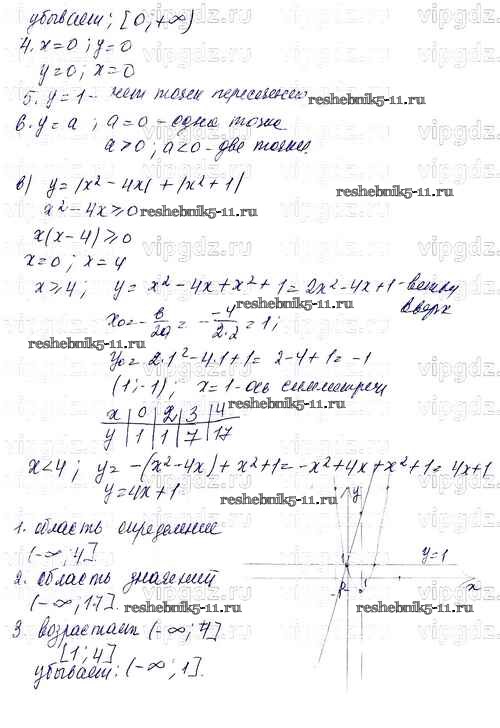 убывает; [0;+∞)
4. x=0; y=0
y=0; x=0
5. y=1 - нет точек пересечения
6. y=a; a=0 - одна точка
a>0; a<0 - две точки.
в) y=|x²-4x|+|x²+1|
x²-4x≥0
x(x-4)≥0
x=0; x=4
x≥4; y=x²-4x+x²+1=2x²-4x+1 - ветки вверх
x₀=-в/2a=-(-4)/2·2=1;
y₀=2·1²-4·1+1=2-4+1=-1
(1;-1); x=1 - ось симметрии
x | 0 | 2 | 3 | 4
y | 1 | 1 | 7 | 17
x<4; y=-(x²-4x)+x²+1=-x²+4x+x²+1=4x+1
y=4x+1
1. область определение
(-∞;4].
2. область значений
(-∞;17].
3. возрастает (-∞;4].
[1;4]
убывает: (-∞;1].
y
y=1
x
reshebnik5-11.ru
vipgdz.ru